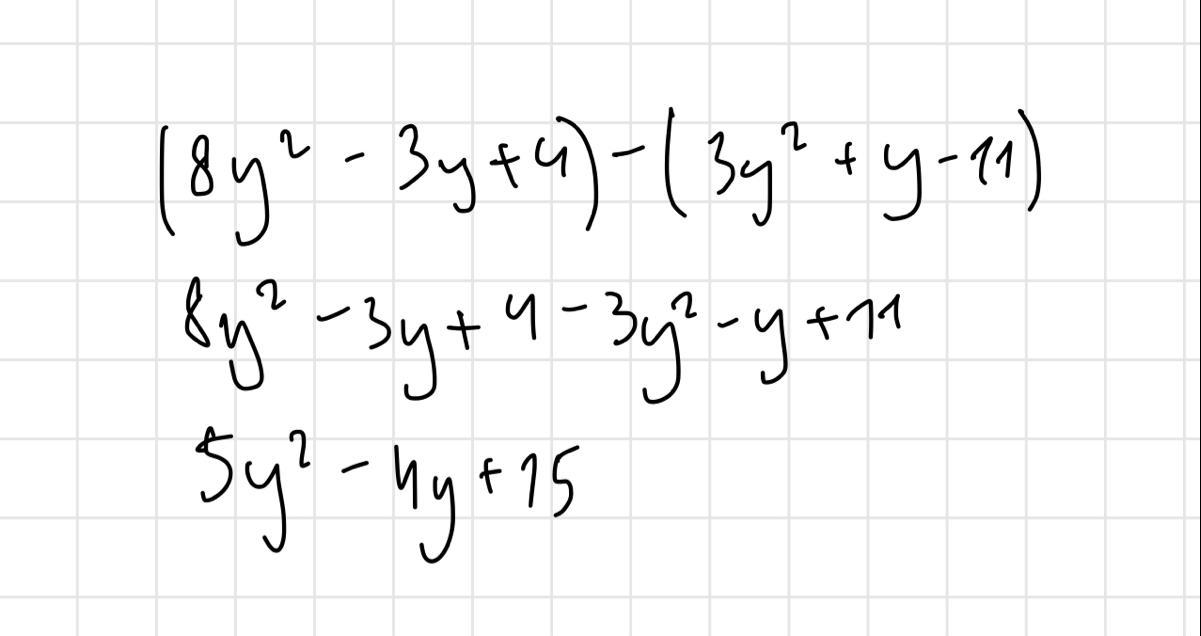 (8y² - 3y + 4) - (3y² + y - 11)
8y² - 3y + 4 - 3y² - y + 11
5y² - 4y + 15